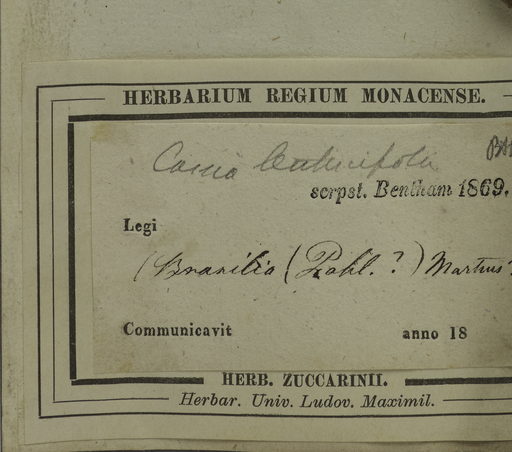 HERBARIUM REGIUM MONACENSE.
Cassia
scrpst. Bentham 1869.
Legi
(Brasilia (Pohl.?) Martius?
Communicavit anno 18
HERB. ZUCCARINII.
Herbar. Univ. Ludov. Maximil.